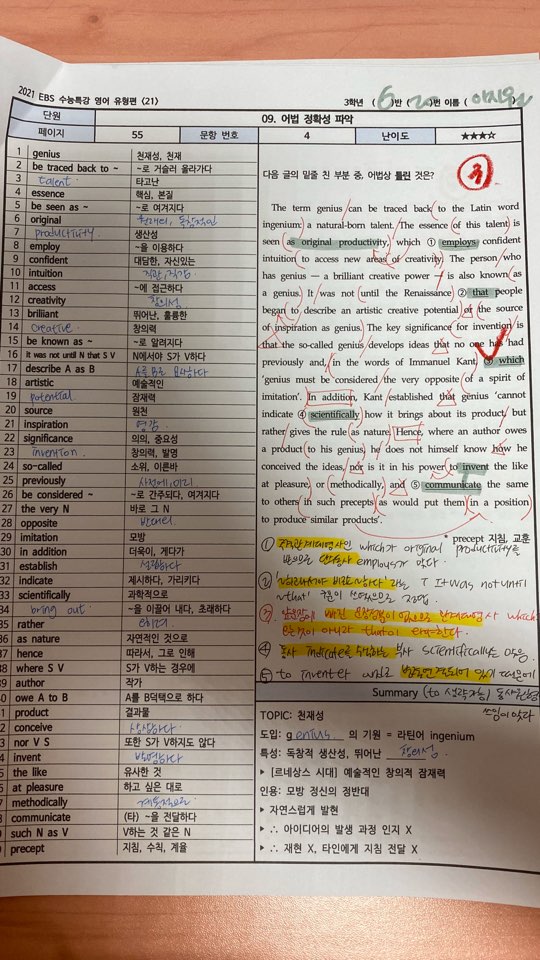 2021 EBS 수능특강 영어 유형편 <21>
3학년 ( 6 )반 ( 20 )번 이름 (
단원 09. 어법 정확성 파악
페이지 55 문항 번호 4 난이도 ★★★☆
1 genius 천재성, 천재
2 be traced back to ~ ~로 거슬러 올라가다
3 talent 타고난
4 essence 핵심, 본질
5 be seen as ~ ~로 여겨지다
6 original 독창적인
7 productivity 생산성
8 employ ~을 이용하다
9 confident 대담한, 자신있는
10 intuition 직관, 직감
11 access ~에 접근하다
12 creativity 창의성
13 brilliant 뛰어난, 훌륭한
14 creative 창의력
15 be known as ~ ~로 알려지다
16 it was not until N that S V N에서야 S가 V하다
17 describe A as B A를 B로 묘사하다
18 artistic 예술적인
19 potential 잠재력
20 source 원천
21 inspiration 영감
22 significance 의의, 중요성
23 invention 창의력, 발명
24 so-called 소위, 이른바
25 previously 사전에, 미리
26 be considered ~ ~로 간주되다, 여겨지다
27 the very N 바로 그 N
28 opposite 반대의
29 imitation 모방
30 in addition 더욱이, 게다가
31 establish 설립하다
32 indicate 제시하다, 가리키다
33 scientifically 과학적으로
34 bring out ~을 이끌어 내다, 초래하다
35 rather 오히려
36 as nature 자연적인 것으로
37 hence 따라서, 그로 인해
38 where S V S가 V하는 경우에
39 author 작가
40 owe A to B A를 B덕택으로 하다
1 product 결과물
2 conceive 상상하다
3 nor V S 또한 S가 V하지도 않다
4 invent 발명하다
5 the like 유사한 것
6 at pleasure 하고 싶은 대로
7 methodically 계획적으로
8 communicate (타) ~을 전달하다
9 such N as V V하는 것 같은 N
precept 지침, 수칙, 계율
다음 글의 밑줄 친 부분 중, 어법상 틀린 것은?
3
The term genius can be traced back to the Latin word
ingenium, a natural-born talent. The essence of this talent is
seen as original productivity, which ① employs confident
intuition to access new areas of creativity. The person who
has genius — a brilliant creative power — is also known as
a genius. It was not until the Renaissance ② that people
began to describe an artistic creative potential or the source
of inspiration as genius. The key significance for invention is
that the so-called genius develops ideas that no one has had
previously and, in the words of Immanuel Kant, ③ which
'genius must be considered the very opposite of a spirit of
imitation'. In addition, Kant established that genius 'cannot
indicate ④ scientifically how it brings about its product, but
rather gives the rule as nature. Hence, where an author owes
a product to his genius, he does not himself know how he
conceived the ideas, nor is it in his power to invent the like
at pleasure, or methodically, and ⑤ communicate the same
to others in such precepts as would put them in a position
to produce similar products'.
* precept 지침, 교훈
① 주격관계대명사인 which가 original productivity를
받으므로 단수동사 employs가 맞다.
that' 구문이 쓰였으므로 적절
④ 동사 indicate를 수식하는 부사 scientifically는 맞음.
⑤ to invent와 병렬연결되어 있기 때문에
Summary (to 생략가능) 동사원형
쓰임이 맞다
TOPIC: 천재성
도입: genius 의 기원 = 라틴어 ingenium
특성: 독창적 생산성, 뛰어난 창의성
▶ [르네상스 시대] 예술적인 창의적 잠재력
인용: 모방 정신의 정반대
▶ 자연스럽게 발현
▶ ∴ 아이디어의 발생 과정 인지 X
▶ ∴ 재현 X, 타인에게 지침 전달 X